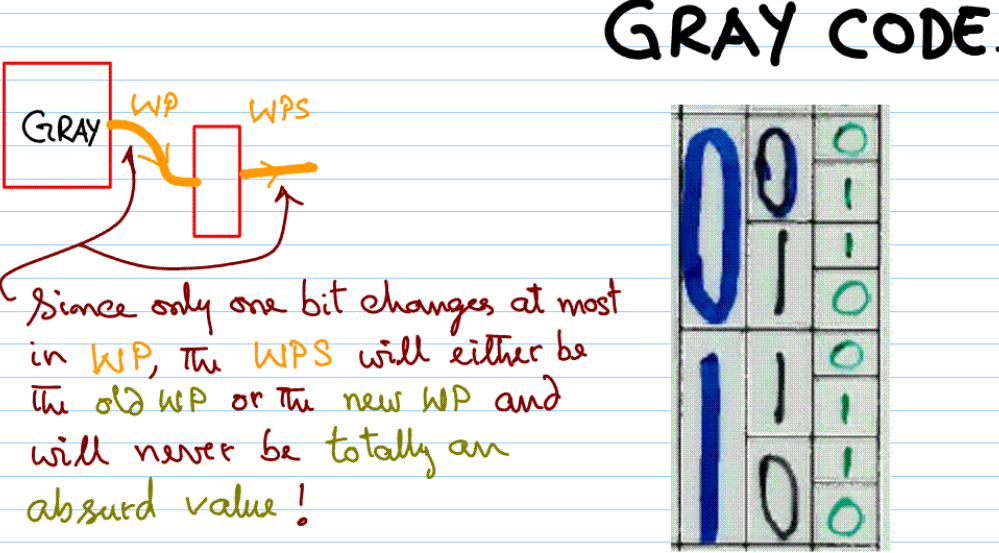 GRAY CODE.
WP
WPS
GRAY
Since only one bit changes at most
in WP, The WPS will either be
The old WP or The new WP and
will never be totally an
absurd value!
0 0 0
1
1 1
0
1 1 0
1
0 1
0